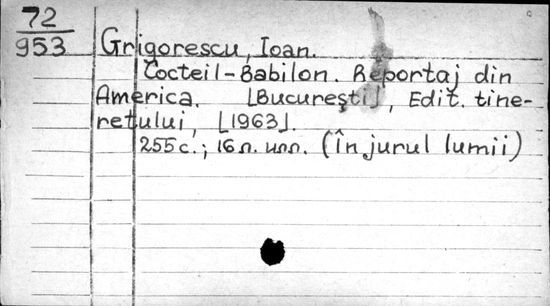 72
953
Grigorescu, Ioan.
Cocteil-Babilon. Reportaj din
America. [Bucureşti], Edit. tine-
retului, [1963].
255 с.; 16 л. илл. (În jurul lumii)